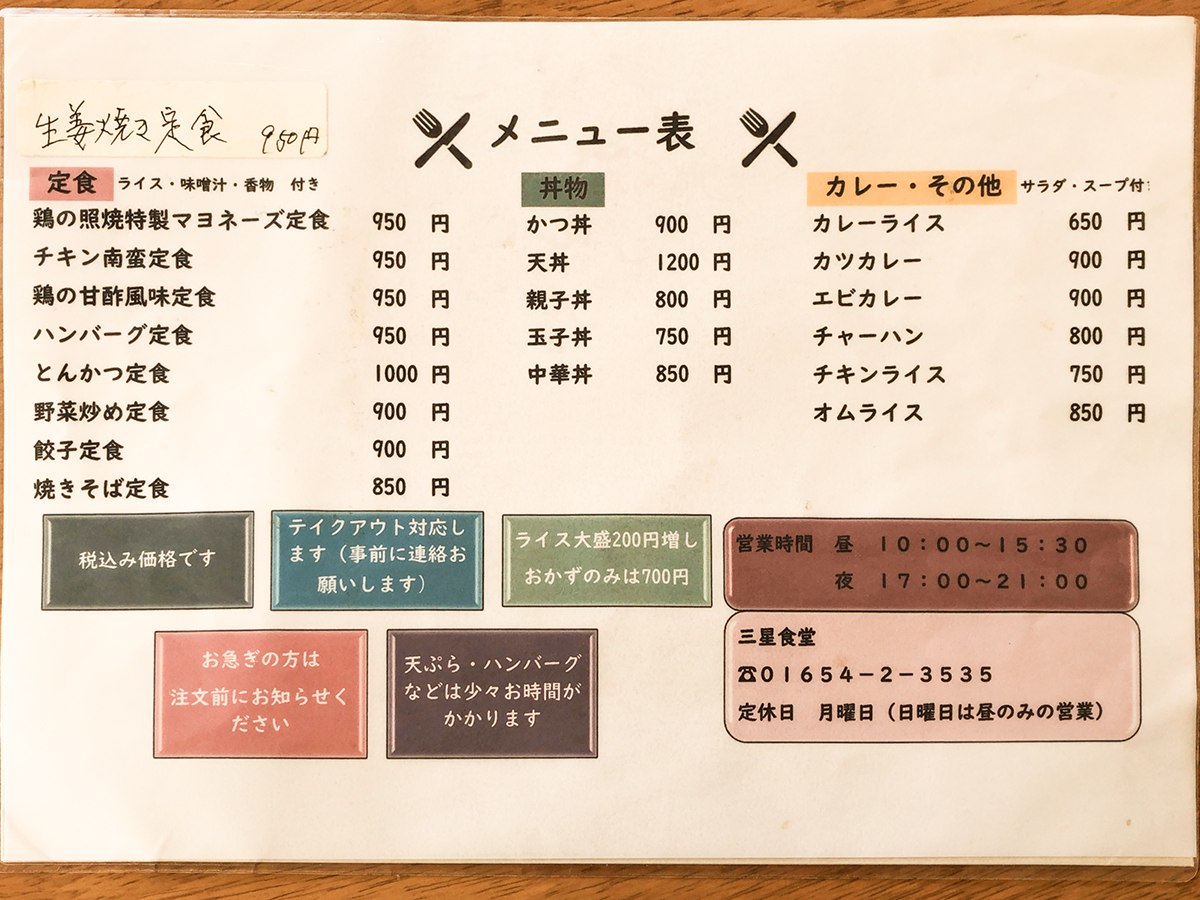 生姜焼き定食 950円
メニュー表
定食 ライス・味噌汁・香物 付き
鶏の照焼特製マヨネーズ定食 950 円
チキン南蛮定食 950 円
鶏の甘酢風味定食 950 円
ハンバーグ定食 950 円
とんかつ定食 1000 円
野菜炒め定食 900 円
餃子定食 900 円
焼きそば定食 850 円
丼物
かつ丼 900 円
天丼 1200 円
親子丼 800 円
玉子丼 750 円
中華丼 850 円
カレー・その他 サラダ・スープ付
カレーライス 650 円
カツカレー 900 円
エビカレー 900 円
チャーハン 800 円
チキンライス 750 円
オムライス 850 円
税込み価格です
テイクアウト対応し
ます（事前に連絡お
願いします）
ライス大盛200円増し
おかずのみは700円
営業時間 昼 １０：００～１５：３０
夜 １７：００～２１：００
お急ぎの方は
注文前にお知らせく
ださい
天ぷら・ハンバーグ
などは少々お時間が
かかります
三星食堂
☎０１６５４－２－３５３５
定休日 月曜日（日曜日は昼のみの営業）